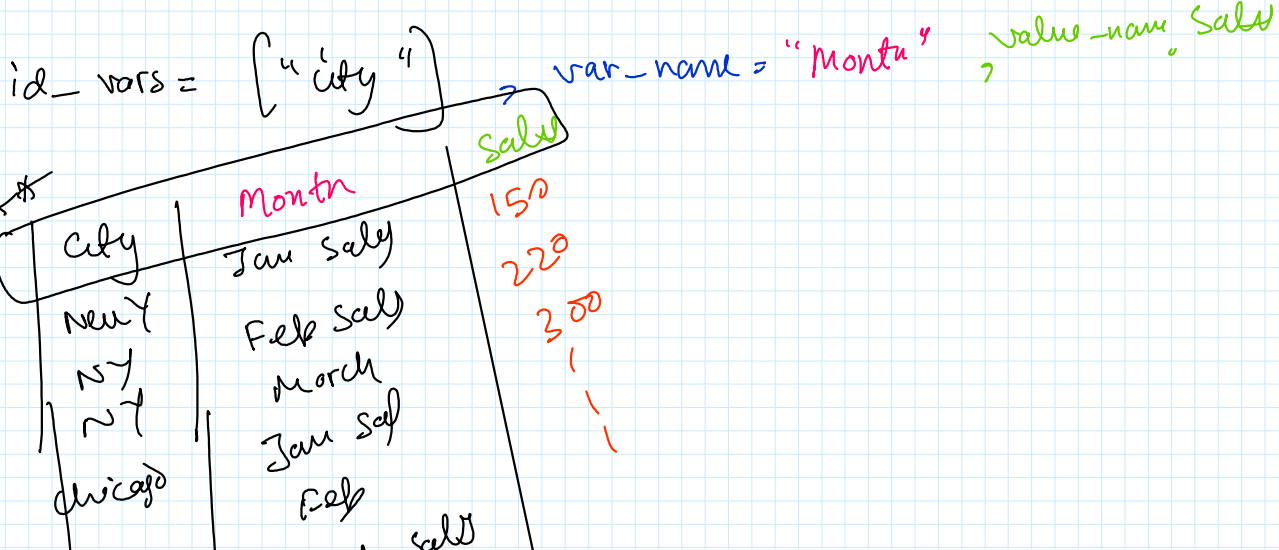 id_vars = ["city"], var_name = "Month", value_name = Sales
City Month Sales
New Y Jan Sales 150
NY Feb Sales 220
NY March 300
Chicago Jan Sal
Feb
Sales